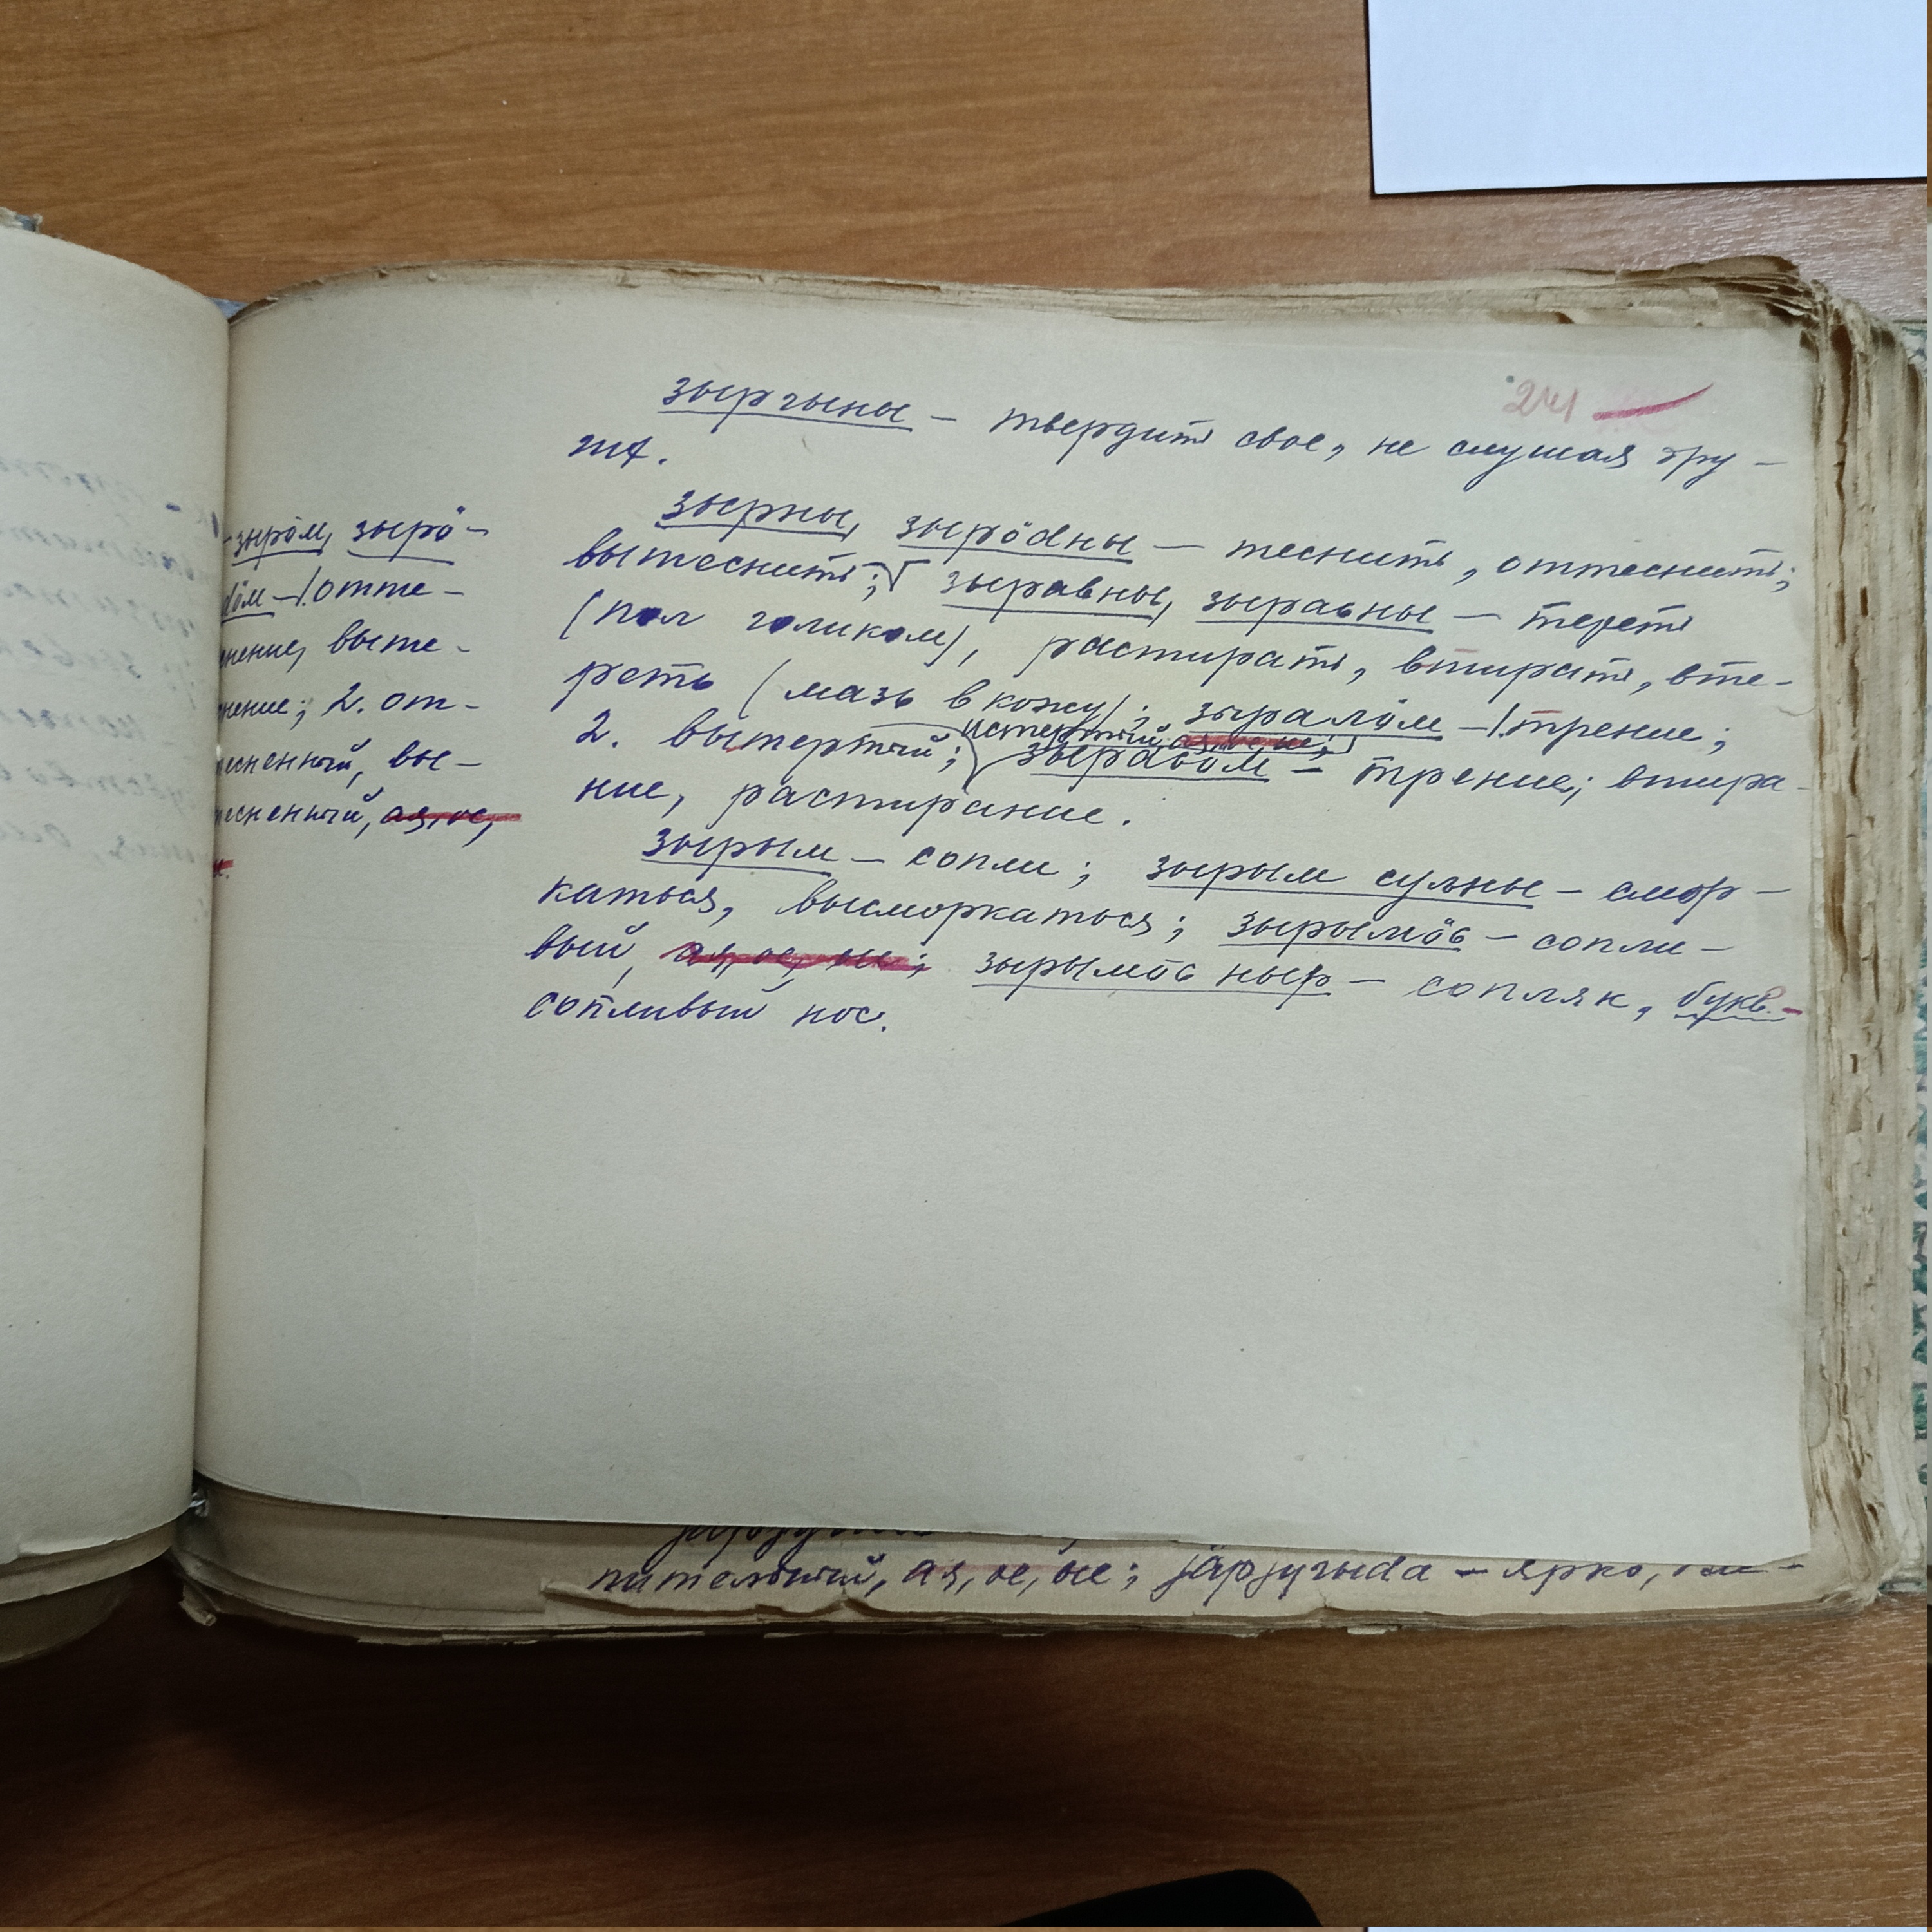 241
зыргыны — твердить свое, не слушая дру-
гих.
зырны, зырӧdны — теснить, оттеснить;
вытеснить; зыравны, зыраwны — тереть
(пол голиком), растирать, втирать, вте-
реть (мазь в кожу); зыралӧм — 1. трение;
истертый, ая, ое, ые;
2. вытертый; зыраӧм — трение; втира-
ние, растирание.
зырым — сопли; зырым сульны — смор-
каться, высморкаться; зырымӧс — сопли-
вый, ая, ое, ые; зырымӧс ныр — сопляк, букв. —
сопливый нос.
-зырӧм, зырӧ-
dӧм — 1. отте-
нение, выте-
нение; 2. от-
есненный, вы-
есненный, ая, ое,
нительный, ая, ое, ые; jарjугыdа — ярко,